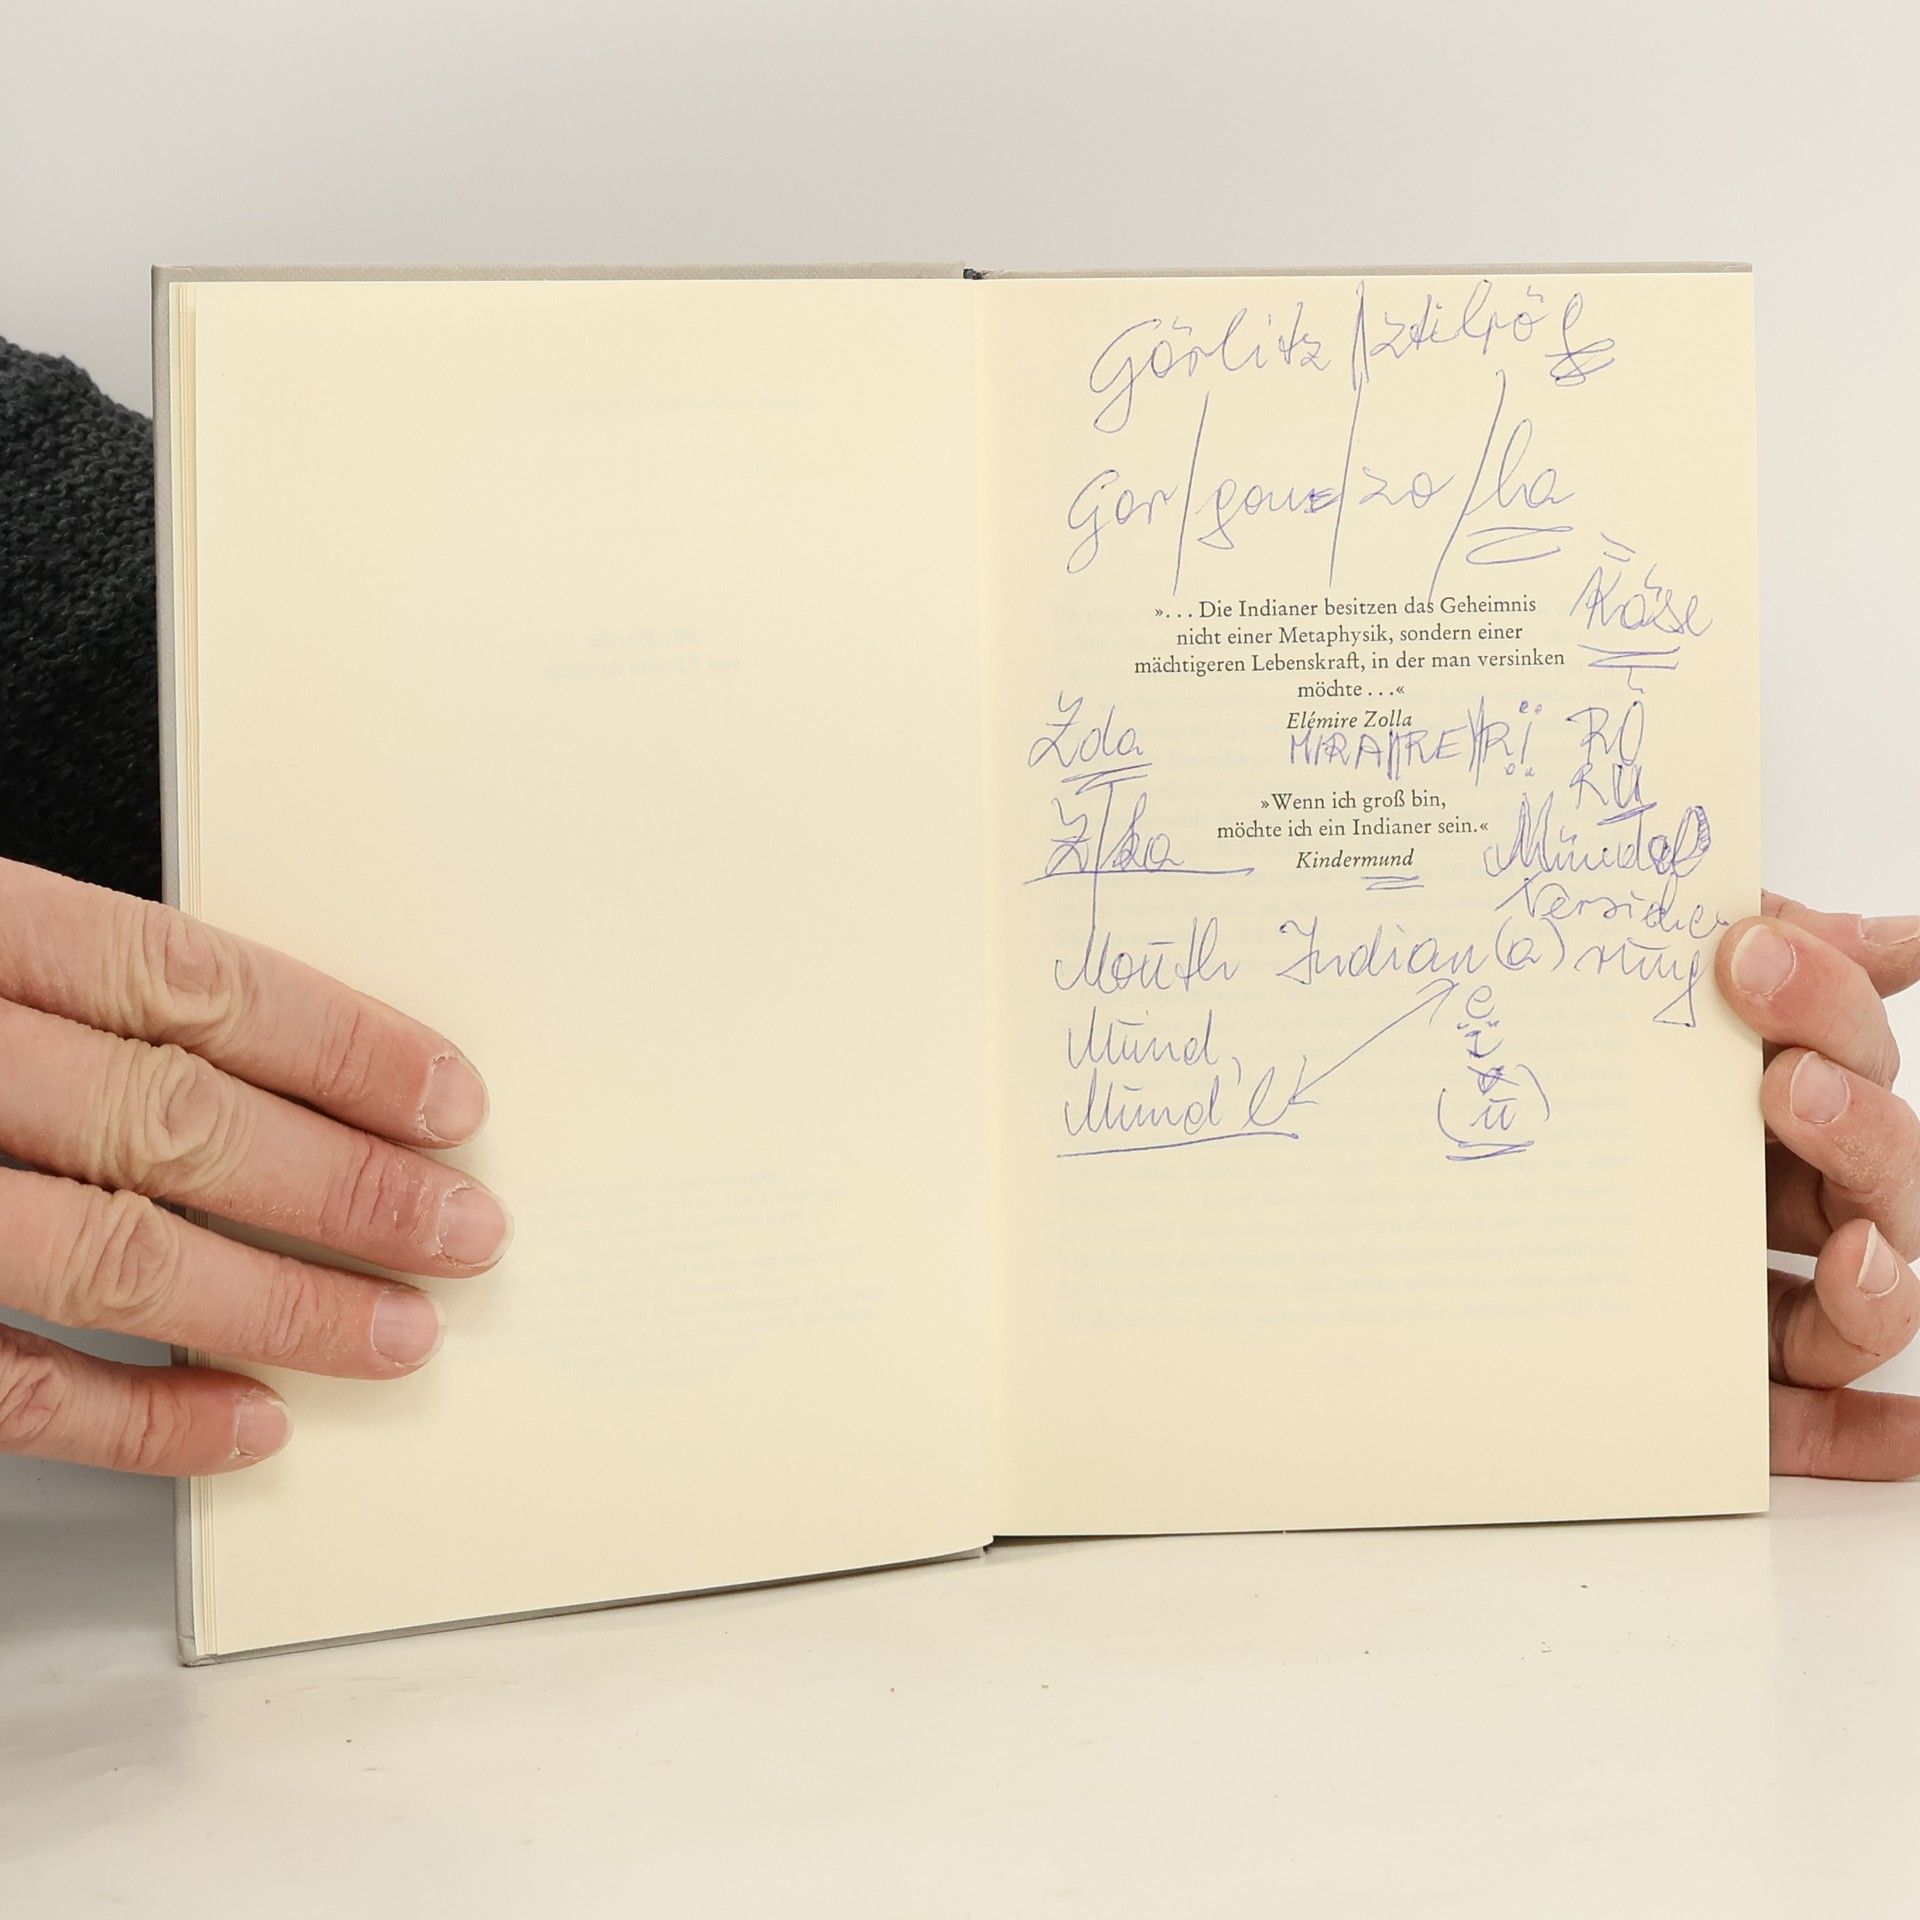 Görlitz / ztilrög
Gor/gon/zo/la
Käse
»... Die Indianer besitzen das Geheimnis
nicht einer Metaphysik, sondern einer
mächtigeren Lebenskraft, in der man versinken
möchte ...«
Elémire Zolla
RA RE Ri RO
RU
»Wenn ich groß bin,
möchte ich ein Indianer sein.«
Kindermund
Mündel
Versicherung
Mouth Indian(a)
Mund,
Mund'l
e
i
(u)